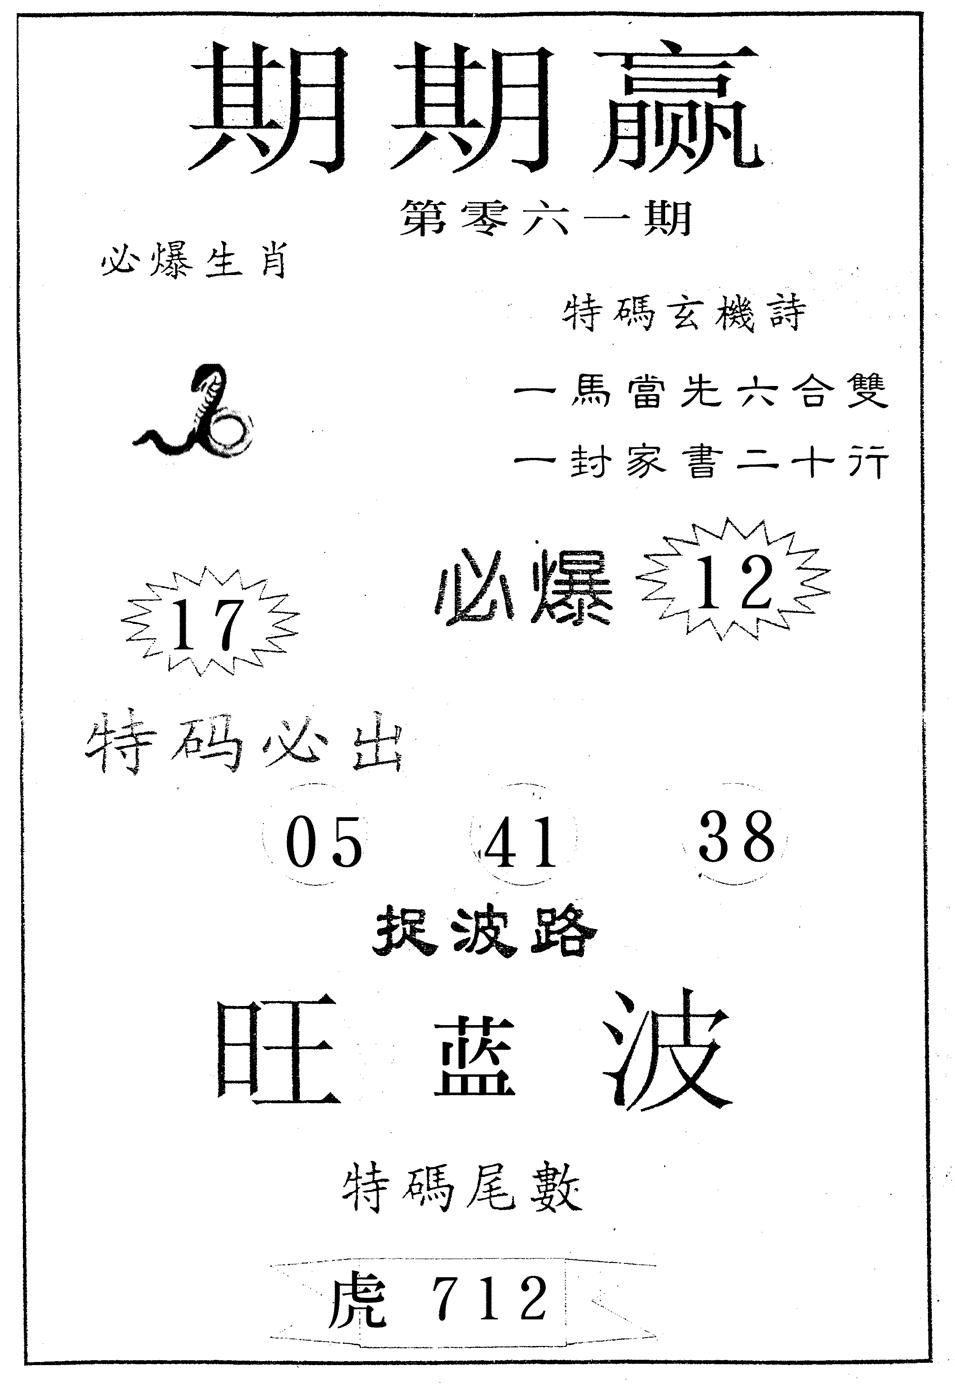 期期赢
第零六一期
必爆生肖
特碼玄機詩
一馬當先六合雙
一封家書二十行
17 必爆 12
特码必出
05 41 38
捉波路
旺蓝波
特碼尾數
虎 712